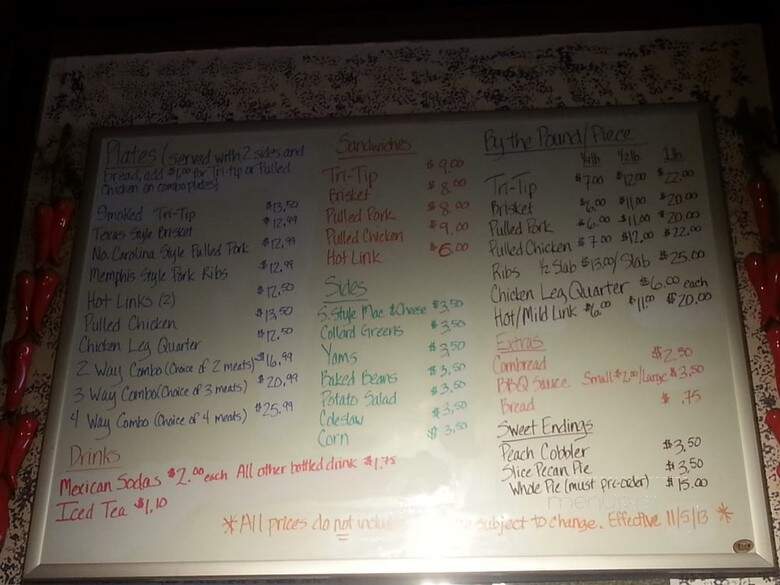 Plates (served with 2 sides and
bread, add $1.00 for Tri-tip or Pulled
Chicken on combo plates)
Smoked Tri-Tip $13.50
Texas Style Brisket $12.99
No. Carolina Style Pulled Pork $12.99
Memphis Style Pork Ribs $12.99
Hot Links (2) $12.50
Pulled Chicken $13.50
Chicken Leg Quarter $12.50
2 Way Combo (Choice of 2 meats) $16.99
3 Way Combo (Choice of 3 meats) $20.99
4 Way Combo (Choice of 4 meats) $25.99
Drinks
Mexican Sodas $2.00 each All other bottled drink $1.75
Iced Tea $1.10
Sandwiches
Tri-Tip $9.00
Brisket $8.00
Pulled Pork $8.00
Pulled Chicken $9.00
Hot Link $6.00
Sides
S. Style Mac & Cheese $3.50
Collard Greens $3.50
Yams $3.50
Baked Beans $3.50
Potato Salad $3.50
Coleslaw $3.50
Corn $3.50
By the Pound/Piece
1/4 lb 1/2 lb 1 lb
Tri-Tip $7.00 $12.00 $22.00
Brisket $6.00 $11.00 $20.00
Pulled Pork $6.00 $11.00 $20.00
Pulled Chicken $7.00 $12.00 $22.00
Ribs 1/2 Slab $13.00/ Slab $25.00
Chicken Leg Quarter $6.00 each
Hot/Mild Link $6.00 $11.00 $20.00
Extras
Cornbread $2.50
BBQ Sauce Small $2.00/Large $3.50
Bread $.75
Sweet Endings
Peach Cobbler $3.50
Slice Pecan Pie $3.50
Whole Pie (must pre-order) $15.00
*All prices do not subject to change. Effective 11/5/13 *